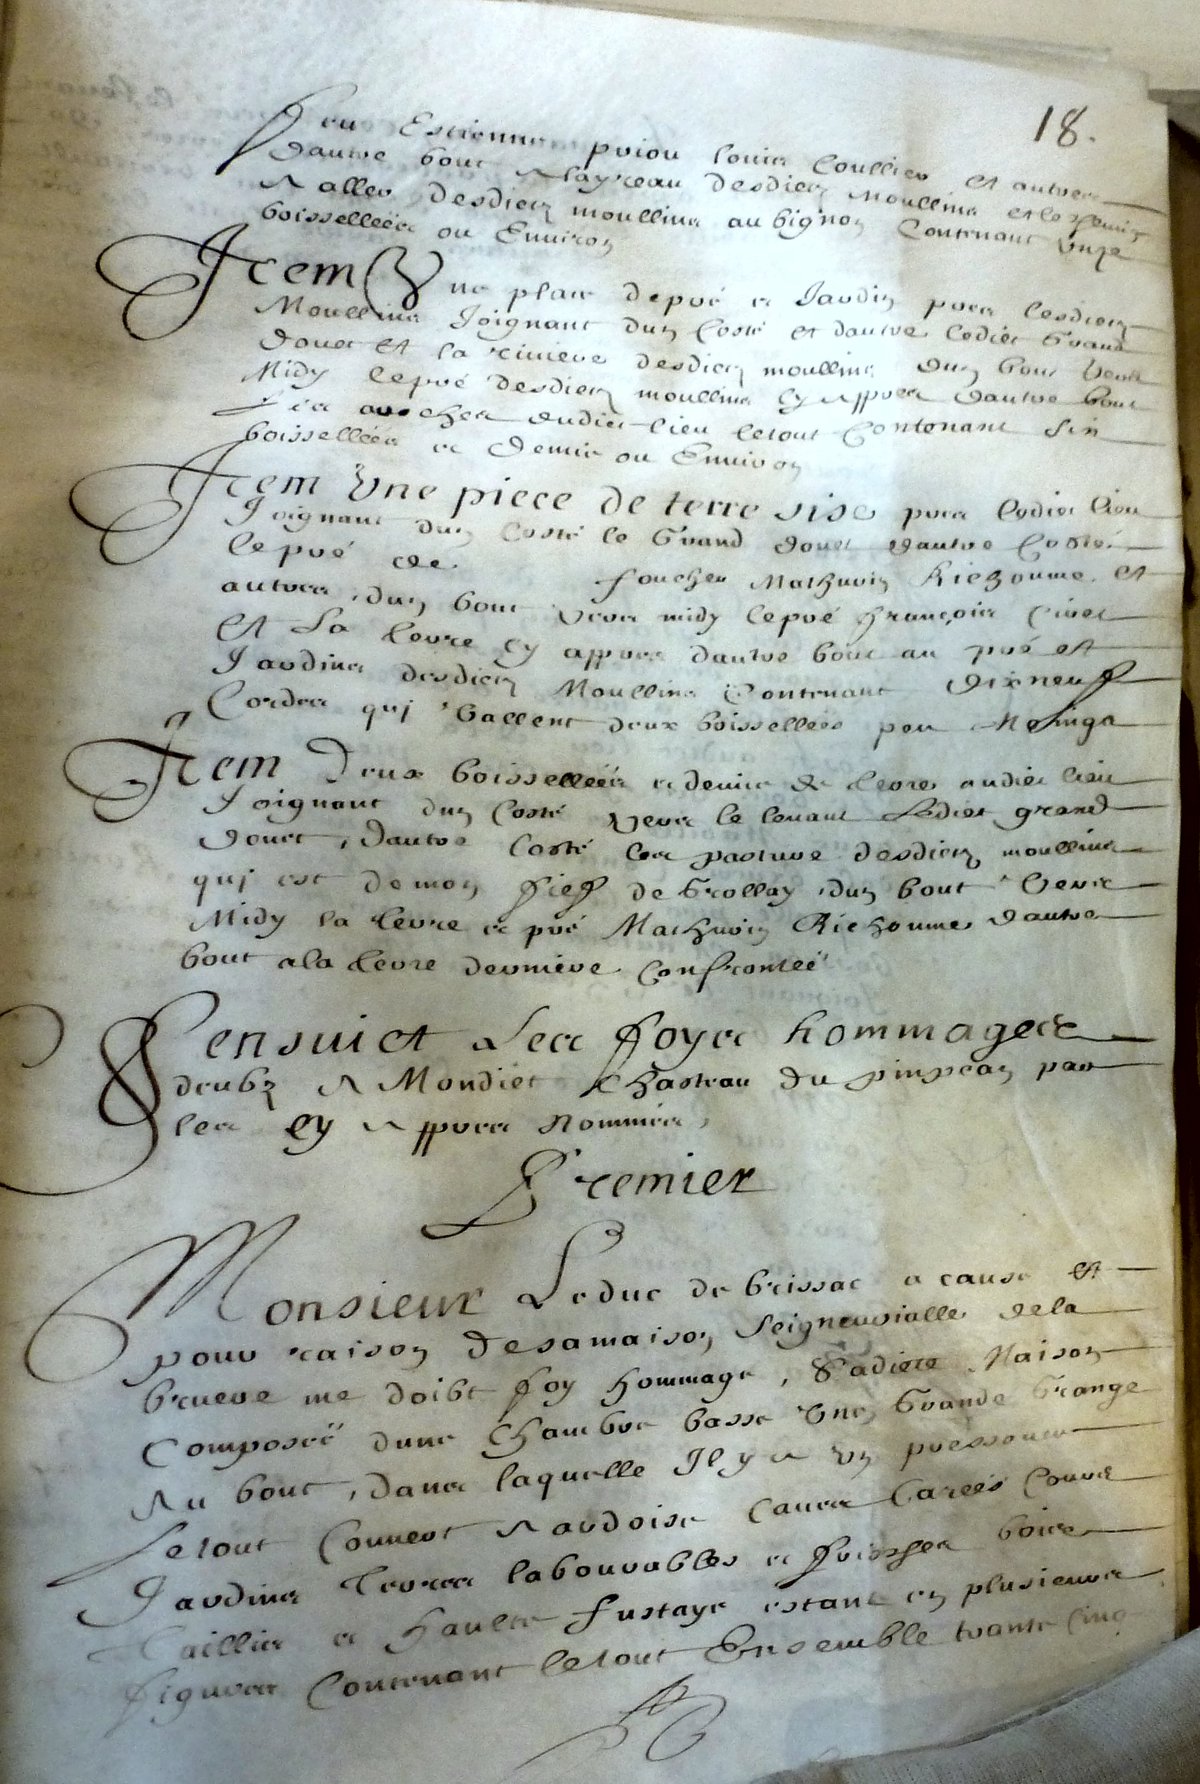 18.
feu Estienne priou louis Coullier et autres
dautre bout a layreau desdictz moullins et le chemin
a aller desdictz moullins au bignon Contenant unze
boissellées ou Environ
Item Une place de pré et Jardin pres lesdictz
Moullins Joignant dun Costé et dautre ledict Grand
douet et la riviere desdictz moullins dun bout vers
Midy le pré desdictz moullins cy apres dautre bout
audict lieu le tout Contenant six
boissellées et demie ou Environ
Item Une piece de terre sise pres ledict lieu
Joignant dun Costé le Grand douet dautre Costé
le pré de foucher Mathurin Richomme et
autres, dun bout vers midy le pré François Civet
et La terre cy apres dautre bout au pré et
Jardins desdictz Moullins Contenant dixneuf
Cordes qui vallent deux boissellées peu Moings
Item Deux boissellées et demie de terre audict lieu
Joignant dun Costé vers le levant Ledict grand
douet, dautre Costé les pasture desdictz moullins
qui est de mon fief de Grollay, dun bout vers
Midy la terre et pré Mathurin Richomme dautre
bout a la terre derniere Confrontée
Sensuict Les foyes hommages
deubz A Mondict Chasteau du pinpean par
les cy Apres Nommés,
Premier
Monsieur Le duc de brissac a cause et
pour raison de sa maison Seigneurialle de la
bruere me doibt foy hommage, Sadicte Maison
Composée dune Chambre basse Une Grande Grange
Au bout, dans laquelle Il y a un pressouer
Le tout Couvert dardoise Caves Carées Cours
Jardins Terres labourables et frisches bois
Taillis et haulte fustaye estant en plusieurs
pieces Contenant le tout Ensemble trante cinq